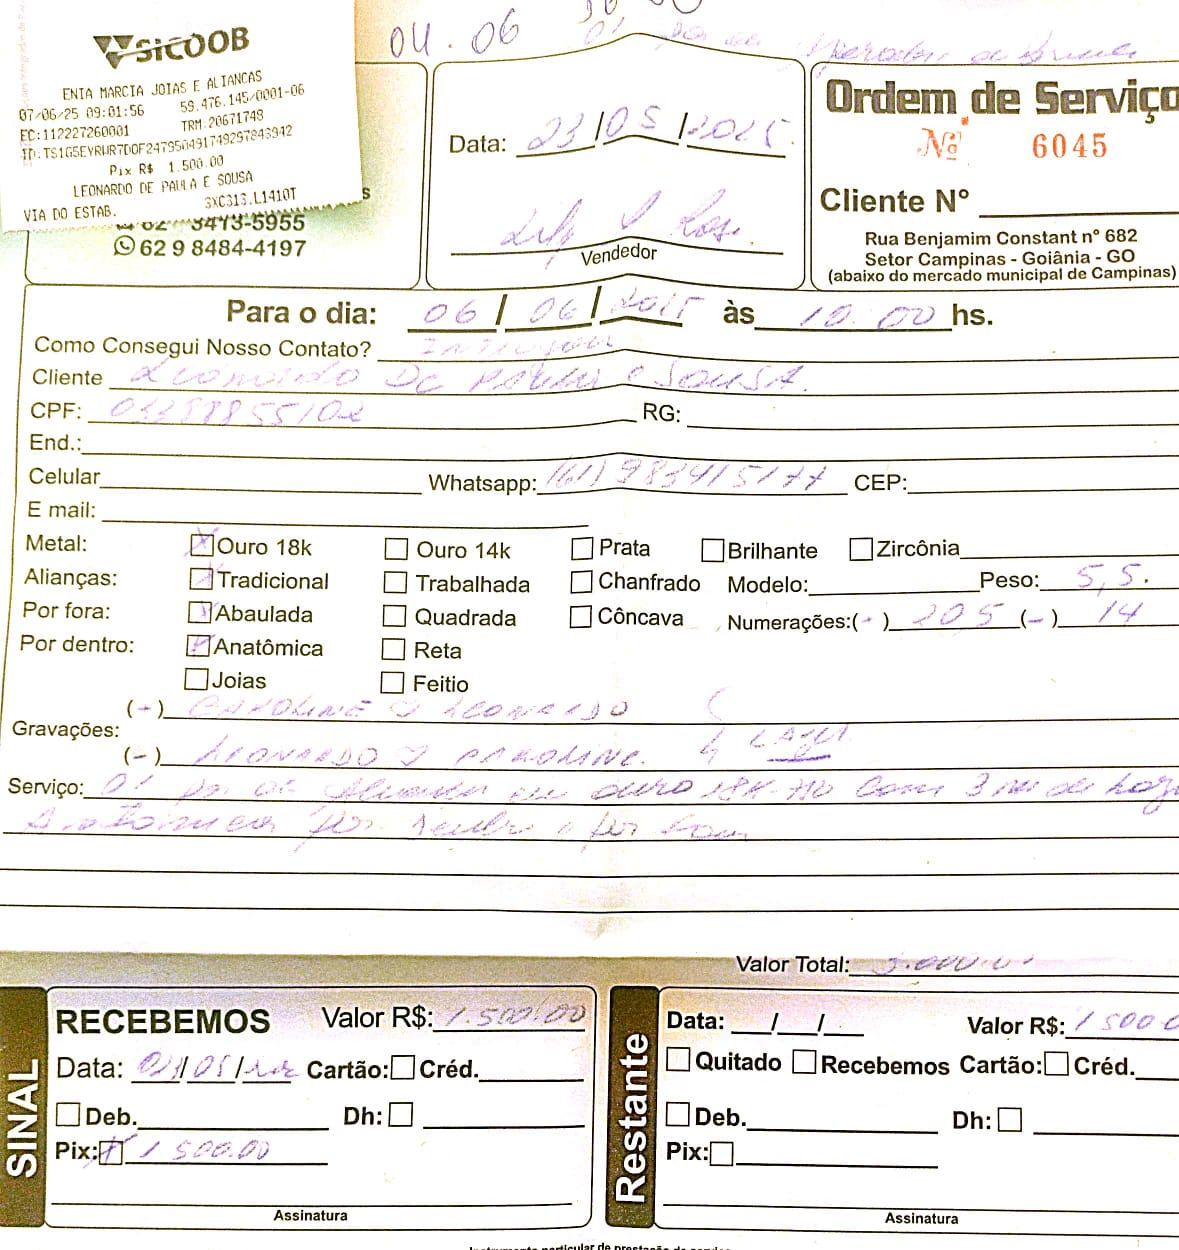 SICOOB
ENIA MARCIA JOIAS E ALIANCAS
07/06/25 09:01:56 59.476.145/0001-06
EC:112227260001 TRM:20671748
ID:TS1G5EYRWR7DOF24795O491749297843942
Pix R$ 1.500.00
LEONARDO DE PAULA E SOUSA
VIA DO ESTAB. 3XC313.L1410T
04.06
62 3473-5955
62 9 8484-4197
Data: 23/05/2025
Vendedor
Ordem de Serviço
Nº 6045
Cliente Nº
Rua Benjamim Constant nº 682
Setor Campinas - Goiânia - GO
(abaixo do mercado municipal de Campinas)
Para o dia: 06/06/2025 às 10:00 hs.
Como Consegui Nosso Contato?
Cliente Leonardo De Paula e Sousa.
CPF: RG:
End.:
Celular Whatsapp: (61) 983415177 CEP:
E mail:
Metal: Ouro 18k Ouro 14k Prata Brilhante Zircônia
Alianças: Tradicional Trabalhada Chanfrado Modelo: Peso: 5,5.
Por fora: Abaulada Quadrada Côncava Numerações:(-) 205 (-) 14
Por dentro: Anatômica Reta
Joias Feitio
(-) CAROLINE ♡ LEONARDO
Gravações:
(-) LEONARDO ♡ CAROLINE.
Serviço: 01 par de Aliança em ouro 18K-750 com 3 mm de Larg
Anatomica por dentro e por fora
Valor Total: 3.000.00
SINAL
RECEBEMOS Valor R$: 1.500.00
Data: Cartão: Créd.
Deb. Dh:
Pix: 1 500.00
Assinatura
Restante
Data: / / Valor R$: 1500 0
Quitado Recebemos Cartão: Créd.
Deb. Dh:
Pix:
Assinatura